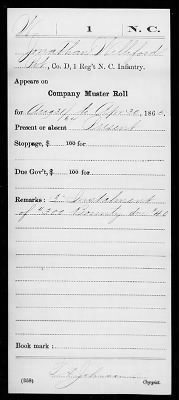 W 1 N.C.
Jonathan Williford
Co. D, 1 Reg't N. C. Infantry.
Appears on
Company Muster Roll
for to Apr 30, 186
Present or absent Present
Stoppage, $ 100 for
Due Gov't, $ 100 for
Remarks: 2 Instalment
of $200 Bounty due $40
Book mark:
(358) Copyist.